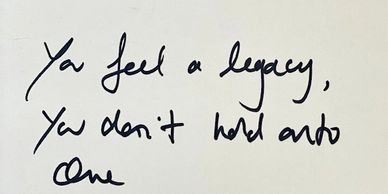 You feel a legacy,
You don't hold onto
One